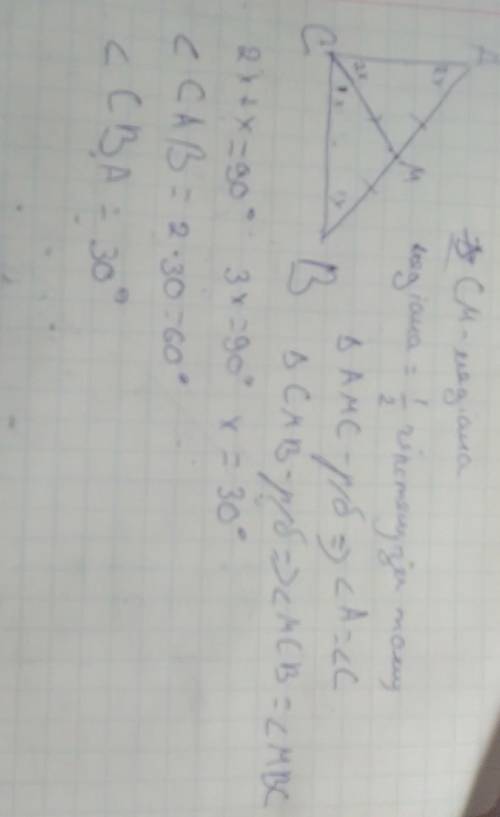 CM - медіана
медіана = 1/2 гіпотенузи тому
Δ AMC - р/б => ∠A = ∠C
Δ CMB - р/б => ∠MCB = ∠MBC
2x + x = 90° 3x = 90° x = 30°
∠ CAB = 2·30 = 60°
∠ CBA = 30°
A
2x
M
C
2x
x
x
B